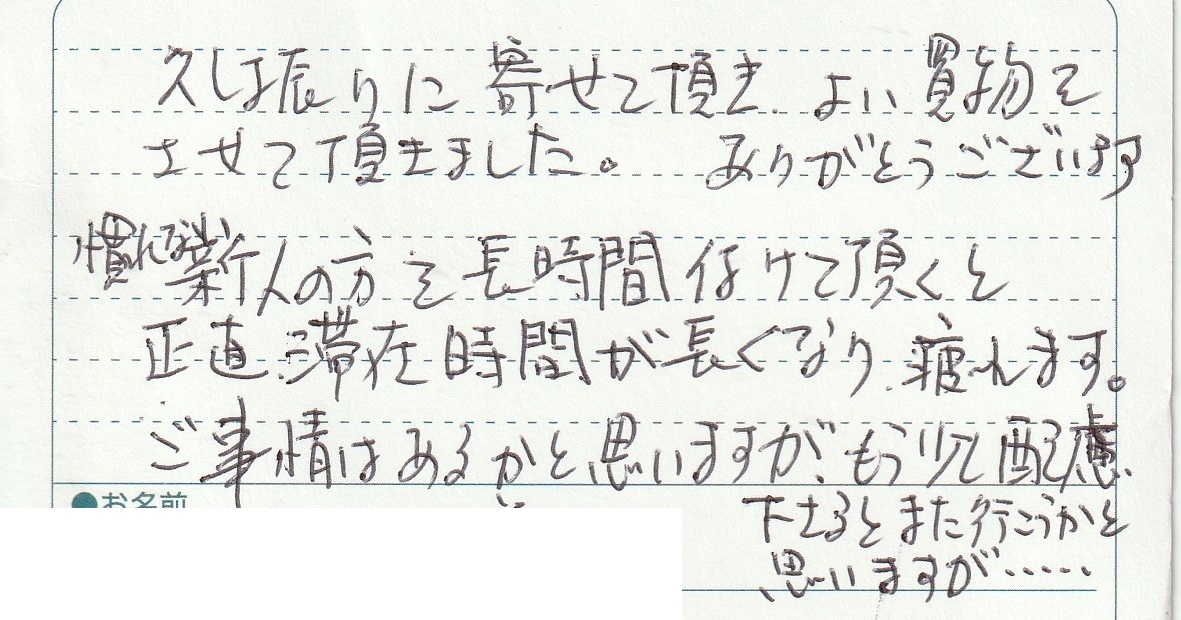 久しぶ振りに寄せて頂き、よい買物を
させて頂きました。 ありがとうございます
慣れない新人の方を長時間付けて頂くと
正直、滞在時間が長くなり、疲れます。
ご事情はあるかと思いますが、もう少し配慮
●お名前
下さるとまた行こうかと
思いますが……